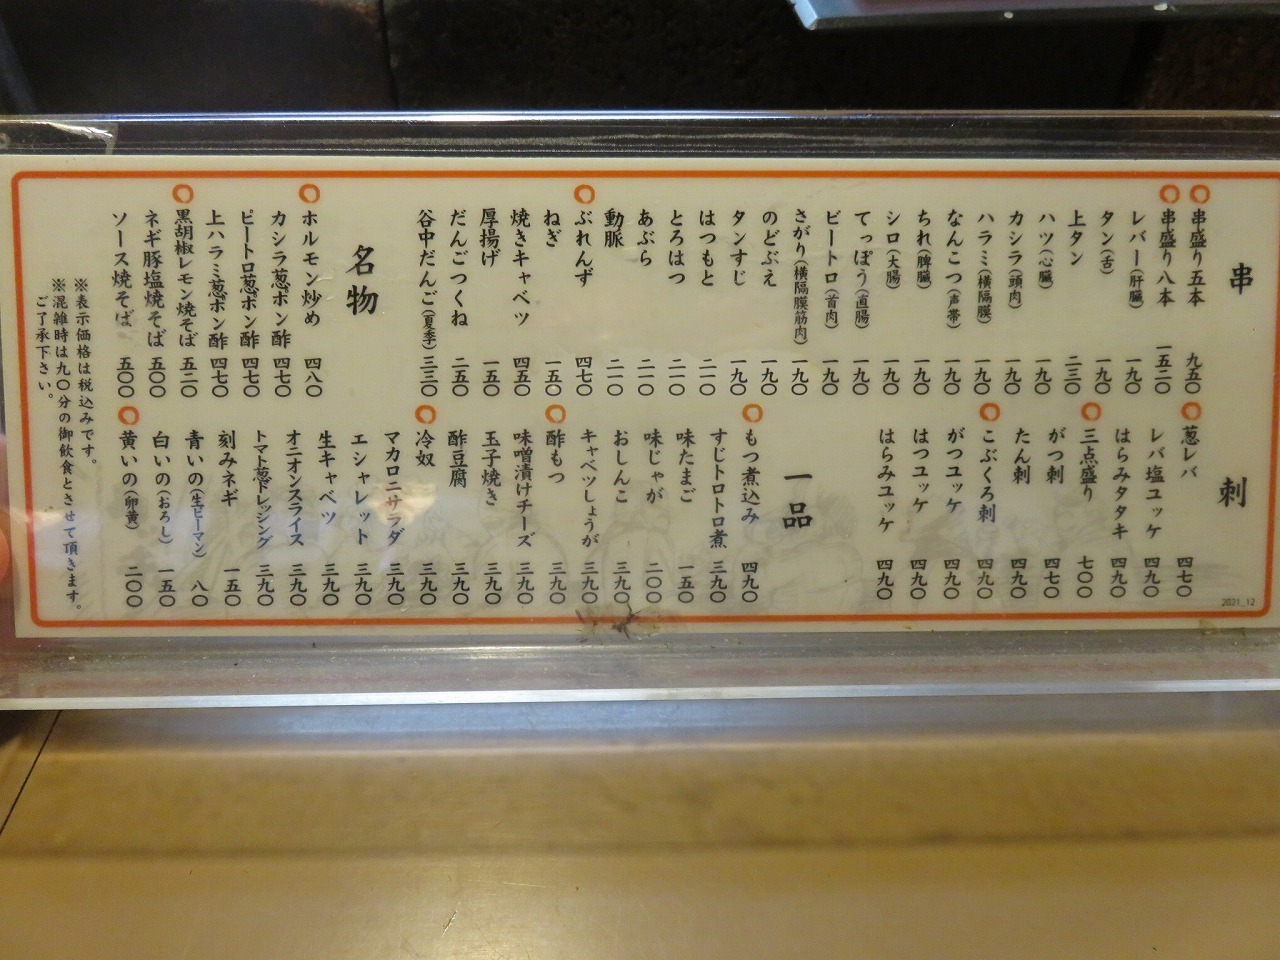 串
串盛り五本 九五〇
串盛り八本 一五二〇
レバー(肝臓) 一九〇
タン(舌) 一九〇
上タン 二三〇
ハツ(心臓) 一九〇
カシラ(頭肉) 一九〇
ハラミ(横隔膜) 一九〇
なんこつ(声帯) 一九〇
ちれ(脾臓) 一九〇
シロ(大腸) 一九〇
てっぽう(直腸) 一九〇
ビートロ(首肉) 一九〇
さがり(横隔膜筋肉) 一九〇
のどぶえ 一九〇
タンすじ 一九〇
はつもと 二一〇
とろはつ 二一〇
あぶら 二一〇
動脈 二一〇
ぶれんず 四七〇
ねぎ 一五〇
焼きキャベツ 四五〇
厚揚げ 一五〇
だんごつくね 二五〇
谷中だんご(夏季) 三三〇
名物
ホルモン炒め 四八〇
カシラ葱ポン酢 四七〇
ピートロ葱ポン酢 四七〇
上ハラミ葱ポン酢 四七〇
黒胡椒レモン焼そば 五二〇
ネギ豚塩焼そば 五〇〇
ソース焼そば 五〇〇
刺
葱レバ 四七〇
レバ塩ユッケ 四九〇
はらみタタキ 四九〇
三点盛り 七〇〇
がつ刺 四七〇
たん刺 四九〇
こぶくろ刺 四九〇
がつユッケ 四九〇
はつユッケ 四九〇
はらみユッケ 四九〇
一品
もつ煮込み 四九〇
すじトロトロ煮 三九〇
味たまご 一五〇
味じゃが 二〇〇
おしんこ 三九〇
キャベツしょうが 三九〇
酢もつ 三九〇
味噌漬けチーズ 三九〇
玉子焼き 三九〇
酢豆腐 三九〇
冷奴 三九〇
マカロニサラダ 三九〇
エシャレット 三九〇
生キャベツ 三九〇
オニオンスライス 三九〇
トマト葱ドレッシング 三九〇
刻みネギ 一五〇
青いの(生ピーマン) 八〇
白いの(おろし) 一五〇
黄いの(卵黄) 二〇〇
※表示価格は税込みです。
※混雑時は九〇分の御飲食とさせて頂きます。
ご了承下さい。
2021_12